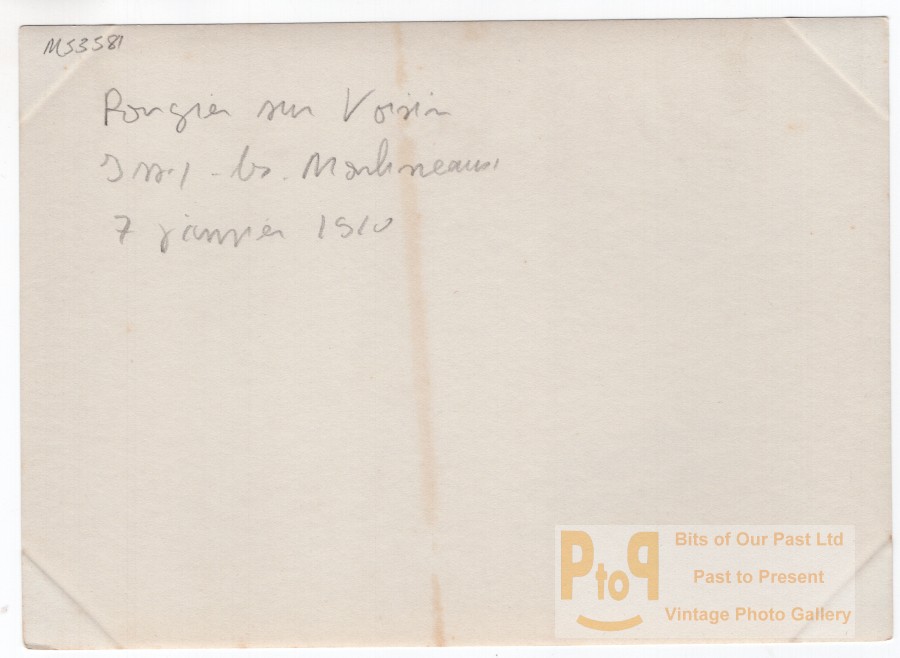 MS3581
Rougier sur Voisin
Issy-les-Moulineaux
7 janvier 1910
PtoP
Bits of Our Past Ltd
Past to Present
Vintage Photo Gallery